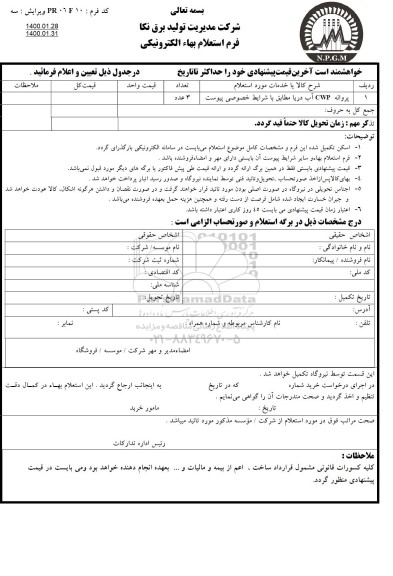 بسمه تعالی
کد فرم : PR ۰۶ F ۱۰ ویرایش : سه
1400.01.28
1400.01.31
شرکت مدیریت تولید برق نکا
فرم استعلام بهاء الکترونیکی
N.P.G.M
خواهشمند است آخرین قیمت پیشنهادی خود را حداکثر تاتاریخ درجدول ذیل تعیین و اعلام فرمائید .
ردیف شرح کالا یا خدمات مورد استعلام تعداد قیمت واحد قیمت کل ملاحظات
۱ پروانه CWP آب دریا مطابق با شرایط خصوصی پیوست ۳ عدد
جمع کل به حروف:
تذکر مهم : زمان تحویل کالا حتماً قید گردد.
توضیحات:
۱- امکان تکمیل شده این فرم و مشخصات کامل موضوع استعلام می‌بایست در سامانه الکترونیکی بارگذرای گردد.
۲- فرم استعلام بهاءو سایر شرایط پیوست آن بایستی دارای مهر و امضاءفروشنده باشد .
۳- قیمت پیشنهادی بایستی فقط در همین برگ ارائه گردد و ارائه قیمت طی پیش فاکتور یا برگه های دیگر مورد قبول نمی‌باشد.
۴- بهای کالاپس ازاخذ صورتحساب ،تحویل وتائید فنی توسط نماینده نیروگاه و صدور رسید انبار پرداخت خواهد شد .
۵- اجناس تحویلی در نیروگاه در صورت اصلی بودن مورد تائید قرار خواهند گرفت و در صورت نقصان و داشتن هرگونه اشکال، کالا عودت خواهد شد
و جبران خسارت ایجاد شده شامل فرصت از دست رفته و همچنین هزینه حمل بعهده فروشنده می‌باشد .
۶- اعتبار زمان قیمت پیشنهادی می بایست ۴۵ روز کاری اعتبار داشته باشد.
درج مشخصات ذیل در برگه استعلام و صورتحساب الزامی است :
اشخاص حقیقی اشخاص حقوقی
نام و نام خانوادگی : نام موسسه/ شرکت :
نام فروشنده / پیمانکار: شماره ثبت شرکت :
کد ملی: کد اقتصادی:
شناسه ملی:
تاریخ تکمیل : تاریخ تحویل:
آدرس: کد پستی :
تلفن : نام کارشناس مربوطه و شماره همراه : نمابر :
ParsNamadData
۰۲۱-۸۸۳۴۹۶۷۰-۵
امضاءمدیر و مهر شرکت / موسسه / فروشگاه
این قسمت توسط نیروگاه تکمیل خواهد شد .
در اجرای درخواست خرید شماره که در تاریخ به اینجانب ارجاع گردید . این استعلام بهاء در کمال دقت
تنظیم و اخذ گردید و صحت مندرجات آن را گواهی می‌نمایم .
تاریخ : مامور خرید
صحت مراتب فوق در مورد استعلام از شرکت / مؤسسه مذکور مورد تائید میباشد .
رئیس اداره تدارکات
ملاحظات :
کلیه کسورات قانونی مشمول قرارداد ساخت ، اعم از بیمه و مالیات و ... بعهده انجام دهنده خواهد بود ومی بایست در قیمت
پیشنهادی منظور گردد.